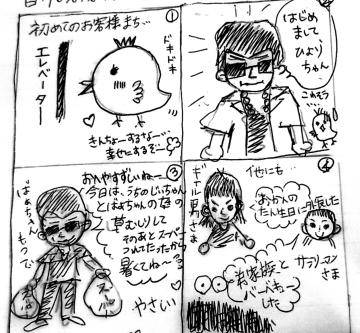 ①
初めてのお客様まち…
エレベーター
ドキドキ
きんちょーするなぁ…
幸せにするぞー
②
はじめ
まして
ひより
ちゃん
こわそう…
③
おへやすずしいねー
今日は、うちのじいちゃん
とばぁちゃんの畑の
草むしりして
そのあとスーパー
つれてたったから
暑くてね〜
ばぁちゃん
もつで
スーパー
やさい
他にも…
ギャル男さま
おかんの
たん生日に外食した
サラリーマン
さま
弟家族と
バーベキュー
した